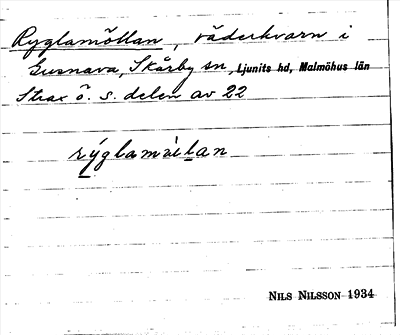 Ryglamöllan, väderkvarn i
Gusnava, Skårby sn, Ljunits hd, Malmöhus län
Strax ö. s. delen av 22
rýglamöllan
NILS NILSSON 1934